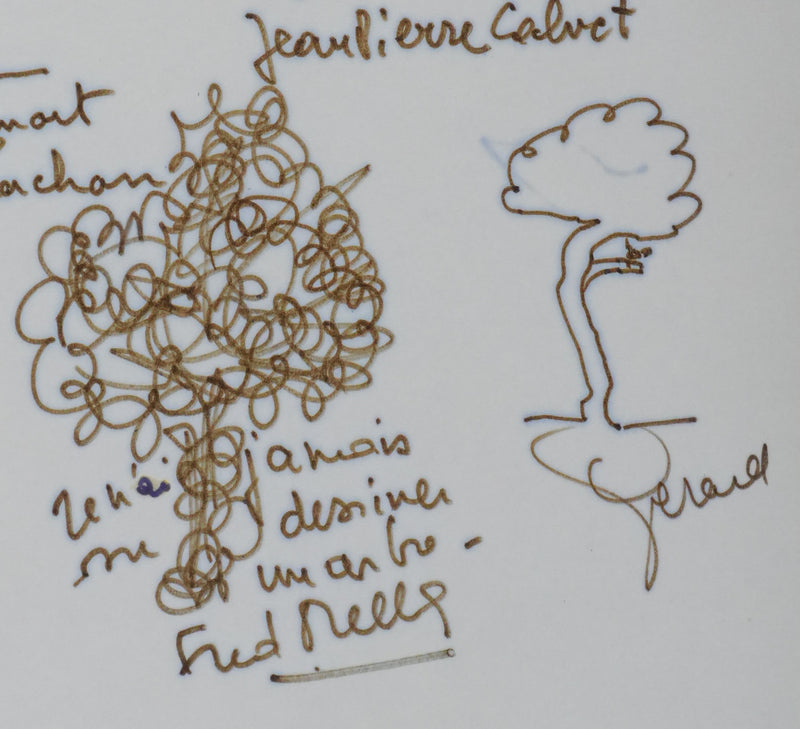 Jean Pierre Calvet
mort
achan
Je n'ai jamais
su dessiner
un arbre -
Fred Mella
Gérard